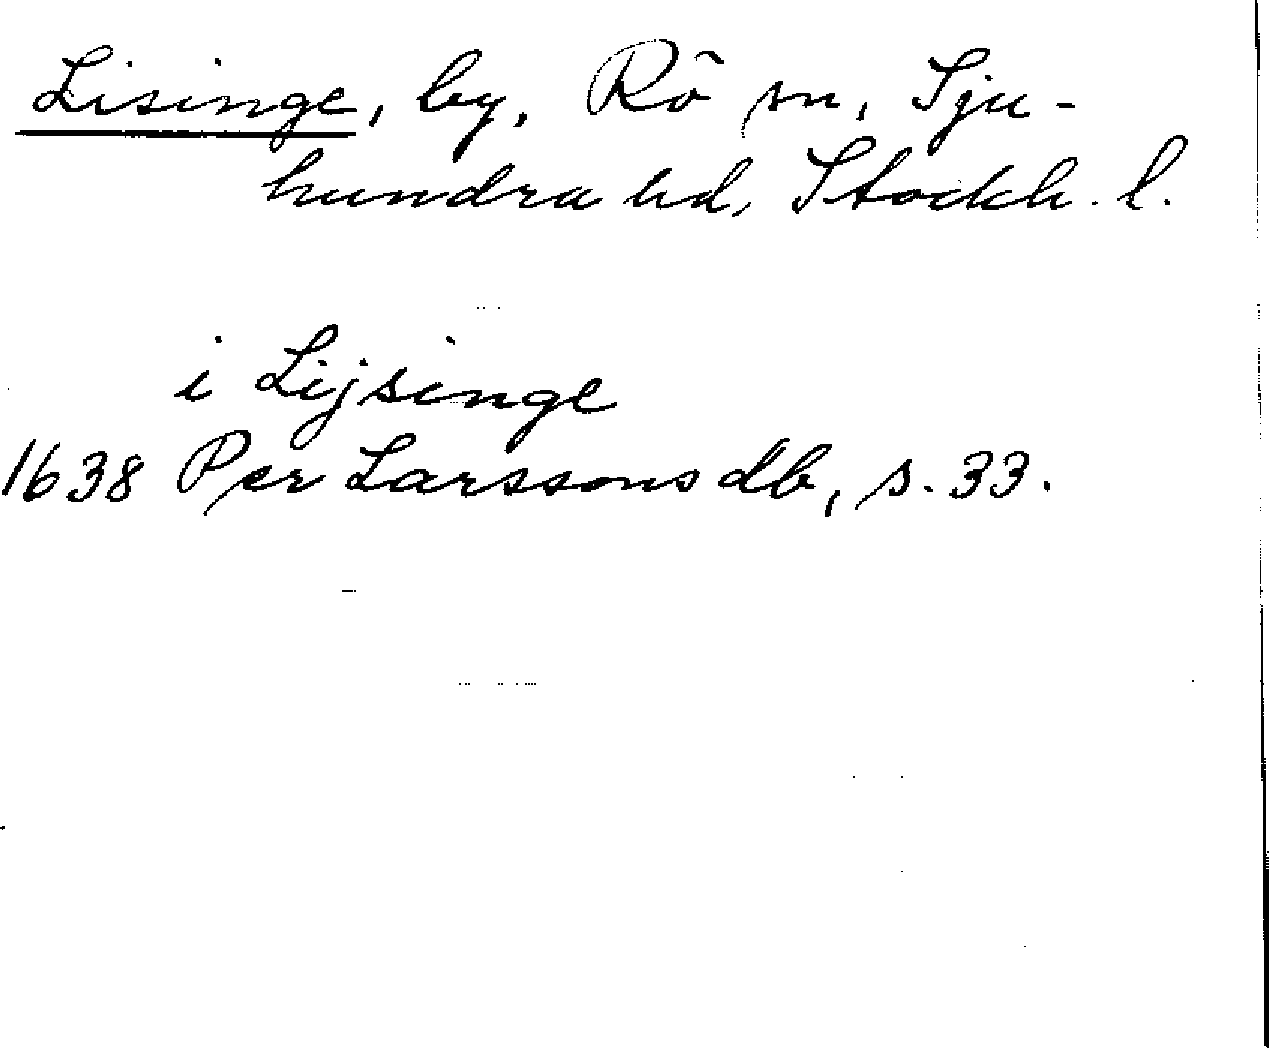 Lisinge, by, Rö sn, Sju-
hundra hd, Stockh. l.
i Lijsinge
1638 Per Larssons db, s. 33.